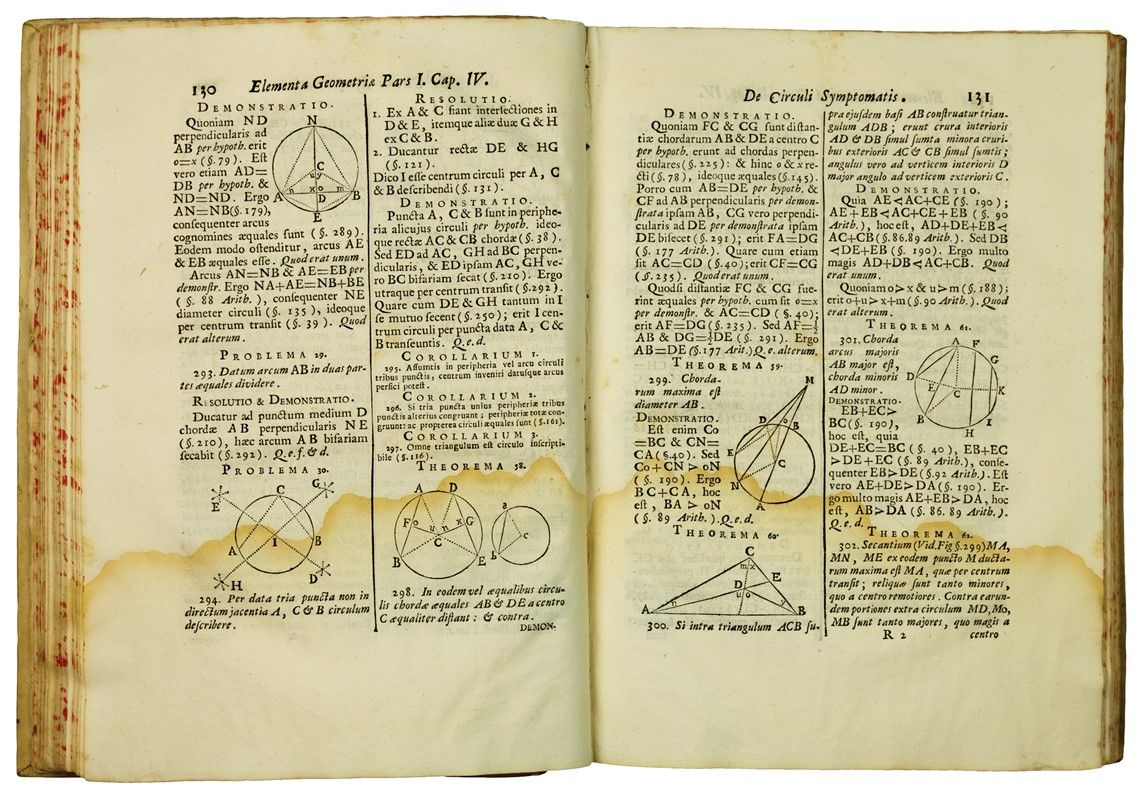 130 Elementa Geometriæ Pars I. Cap. IV.
DEMONSTRATIO.
Quoniam ND
perpendicularis ad
AB per hypoth. erit
o=x (§. 79). Est
vero etiam AD=
DB per hypoth. &
ND=ND. Ergo
AN=NB(§.179),
consequenter arcus
cognomines æquales sunt (§. 289).
Eodem modo ostenditur, arcus AE
& EB æquales esse. Quod erat unum.
Arcus AN=NB & AE=EB per
demonstr. Ergo NA+AE=NB+BE
(§. 88 Arith.), consequenter NE
diameter circuli (§. 135), ideoque
per centrum transit (§. 39). Quod
erat alterum.
PROBLEMA 29.
293. Datum arcum AB in duas par-
tes æquales dividere.
RESOLUTIO & DEMONSTRATIO.
Ducatur ad punctum medium D
chordæ AB perpendicularis NE
(§.210), hæc arcum AB bifariam
secabit (§.292). Q.e.f.& d.
PROBLEMA 30.
294. Per data tria puncta non in
directum jacentia A, C & B circulum
describere.
RESOLUTIO.
1. Ex A & C fiant intersectiones in
D & E, itemque aliæ duæ G & H
ex C & B.
2. Ducantur rectæ DE & HG
(§.121).
Dico I esse centrum circuli per A, C
& B describendi (§. 131).
DEMONSTRATIO.
Puncta A, C & B sunt in periphe-
ria alicujus circuli per hypoth. ideo-
que rectæ AC & CB chordæ (§. 38).
Sed ED ad AC, GH ad BC perpen-
dicularis, & ED ipsam AC, GH ve-
ro BC bifariam secat (§.210). Ergo
utraque per centrum transit (§.292).
Quare cum DE & GH tantum in I
se mutuo secent (§.250); erit I cen-
trum circuli per puncta data A, C &
B transeuntis. Q.e.d.
COROLLARIUM 1.
295. Assumtis in peripheria vel arcu circuli
tribus punctis, centrum inveniri datusque arcus
perfici potest.
COROLLARIUM 2.
296. Si tria puncta unius peripheriæ tribus
punctis alterius congruant; peripheriæ totæ con-
gruunt: ac propterea circuli æquales sunt (§.161).
COROLLARIUM 3.
297. Omne triangulum est circulo inscripti-
bile (§.116).
THEOREMA 58.
298. In eodem vel æqualibus circu-
lis chordæ æquales AB & DE a centro
C æqualiter distant: & contra.
DEMON-
De Circuli Symptomatis. 131
DEMONSTRATIO.
Quoniam FC & CG sunt distan-
tiæ chordarum AB & DE a centro C
per hypoth. erunt ad chordas perpen-
diculares (§.225): & hinc o & x re-
cti (§.78), ideoque æquales (§.145).
Porro cum AB=DE per hypoth. &
CF ad AB perpendicularis per demon-
strata ipsam AB, CG vero perpendi-
cularis ad DE per demonstrata ipsam
DE bisecet (§.291); erit FA=DG
(§. 177 Arith.). Quare cum etiam
sit AC=CD (§.40);erit CF=CG
(§.235). Quod erat unum.
Quodsi distantiæ FC & CG fue-
rint æquales per hypoth. cum sit o=x
per demonstr. & AC=CD (§. 40);
erit AF=DG(§.235). Sed AF=½
AB & DG=½DE (§. 291). Ergo
AB=DE (§.177 Arit.)Q.e.alterum.
THEOREMA 59.
299. Chorda-
rum maxima est
diameter AB.
DEMONSTRATIO.
Est enim Co
=BC & CN=
CA(§.40). Sed
Co+CN > oN
(§. 190). Ergo
BC+CA, hoc
est, BA > oN
(§. 89 Arith.).Q.e.d.
THEOREMA 60.
300. Si intra triangulum ACB su-
pra ejusdem basi AB construatur trian-
gulum ADB; erunt crura interioris
AD & DB simul sumta minora cruri-
bus exterioris AC & CB simul sumtis;
angulus vero ad verticem interioris D
major angulo ad verticem exterioris C.
DEMONSTRATIO.
Quia AE<AC+CE (§. 190);
AE+EB<AC+CE+EB (§. 90
Arith.), hoc est, AD+DE+EB<
AC+CB(§.86.89 Arith.). Sed DB
<DE+EB (§. 190). Ergo multo
magis AD+DB<AC+CB. Quod
erat unum.
Quoniam o>x & u>m (§. 188);
erit o+u>x+m (§.90 Arith.). Quod
erat alterum.
THEOREMA 61.
301. Chorda
arcus majoris
AB major est,
chorda minoris
AD minor.
DEMONSTRATIO.
EB+EC>
BC(§. 190),
hoc est, quia
DE+EC=BC (§. 40), EB+EC
>DE+EC (§. 89 Arith.), conse-
quenter EB>DE(§.92 Arith.). Est
vero AE+DE>DA (§. 190). Er-
go multo magis AE+EB>DA, hoc
est, AB>DA (§. 86. 89 Arith.).
Q.e.d.
THEOREMA 62.
302. Secantium (Vid.Fig §.299) MA,
MN, ME ex eodem puncto M ducta-
rum maxima est MA, quæ per centrum
transit; reliquæ sunt tanto minores,
quo a centro remotiores. Contra earun-
dem portiones extra circulum MD, Mo,
MB sunt tanto majores, quo magis a
R 2 centro